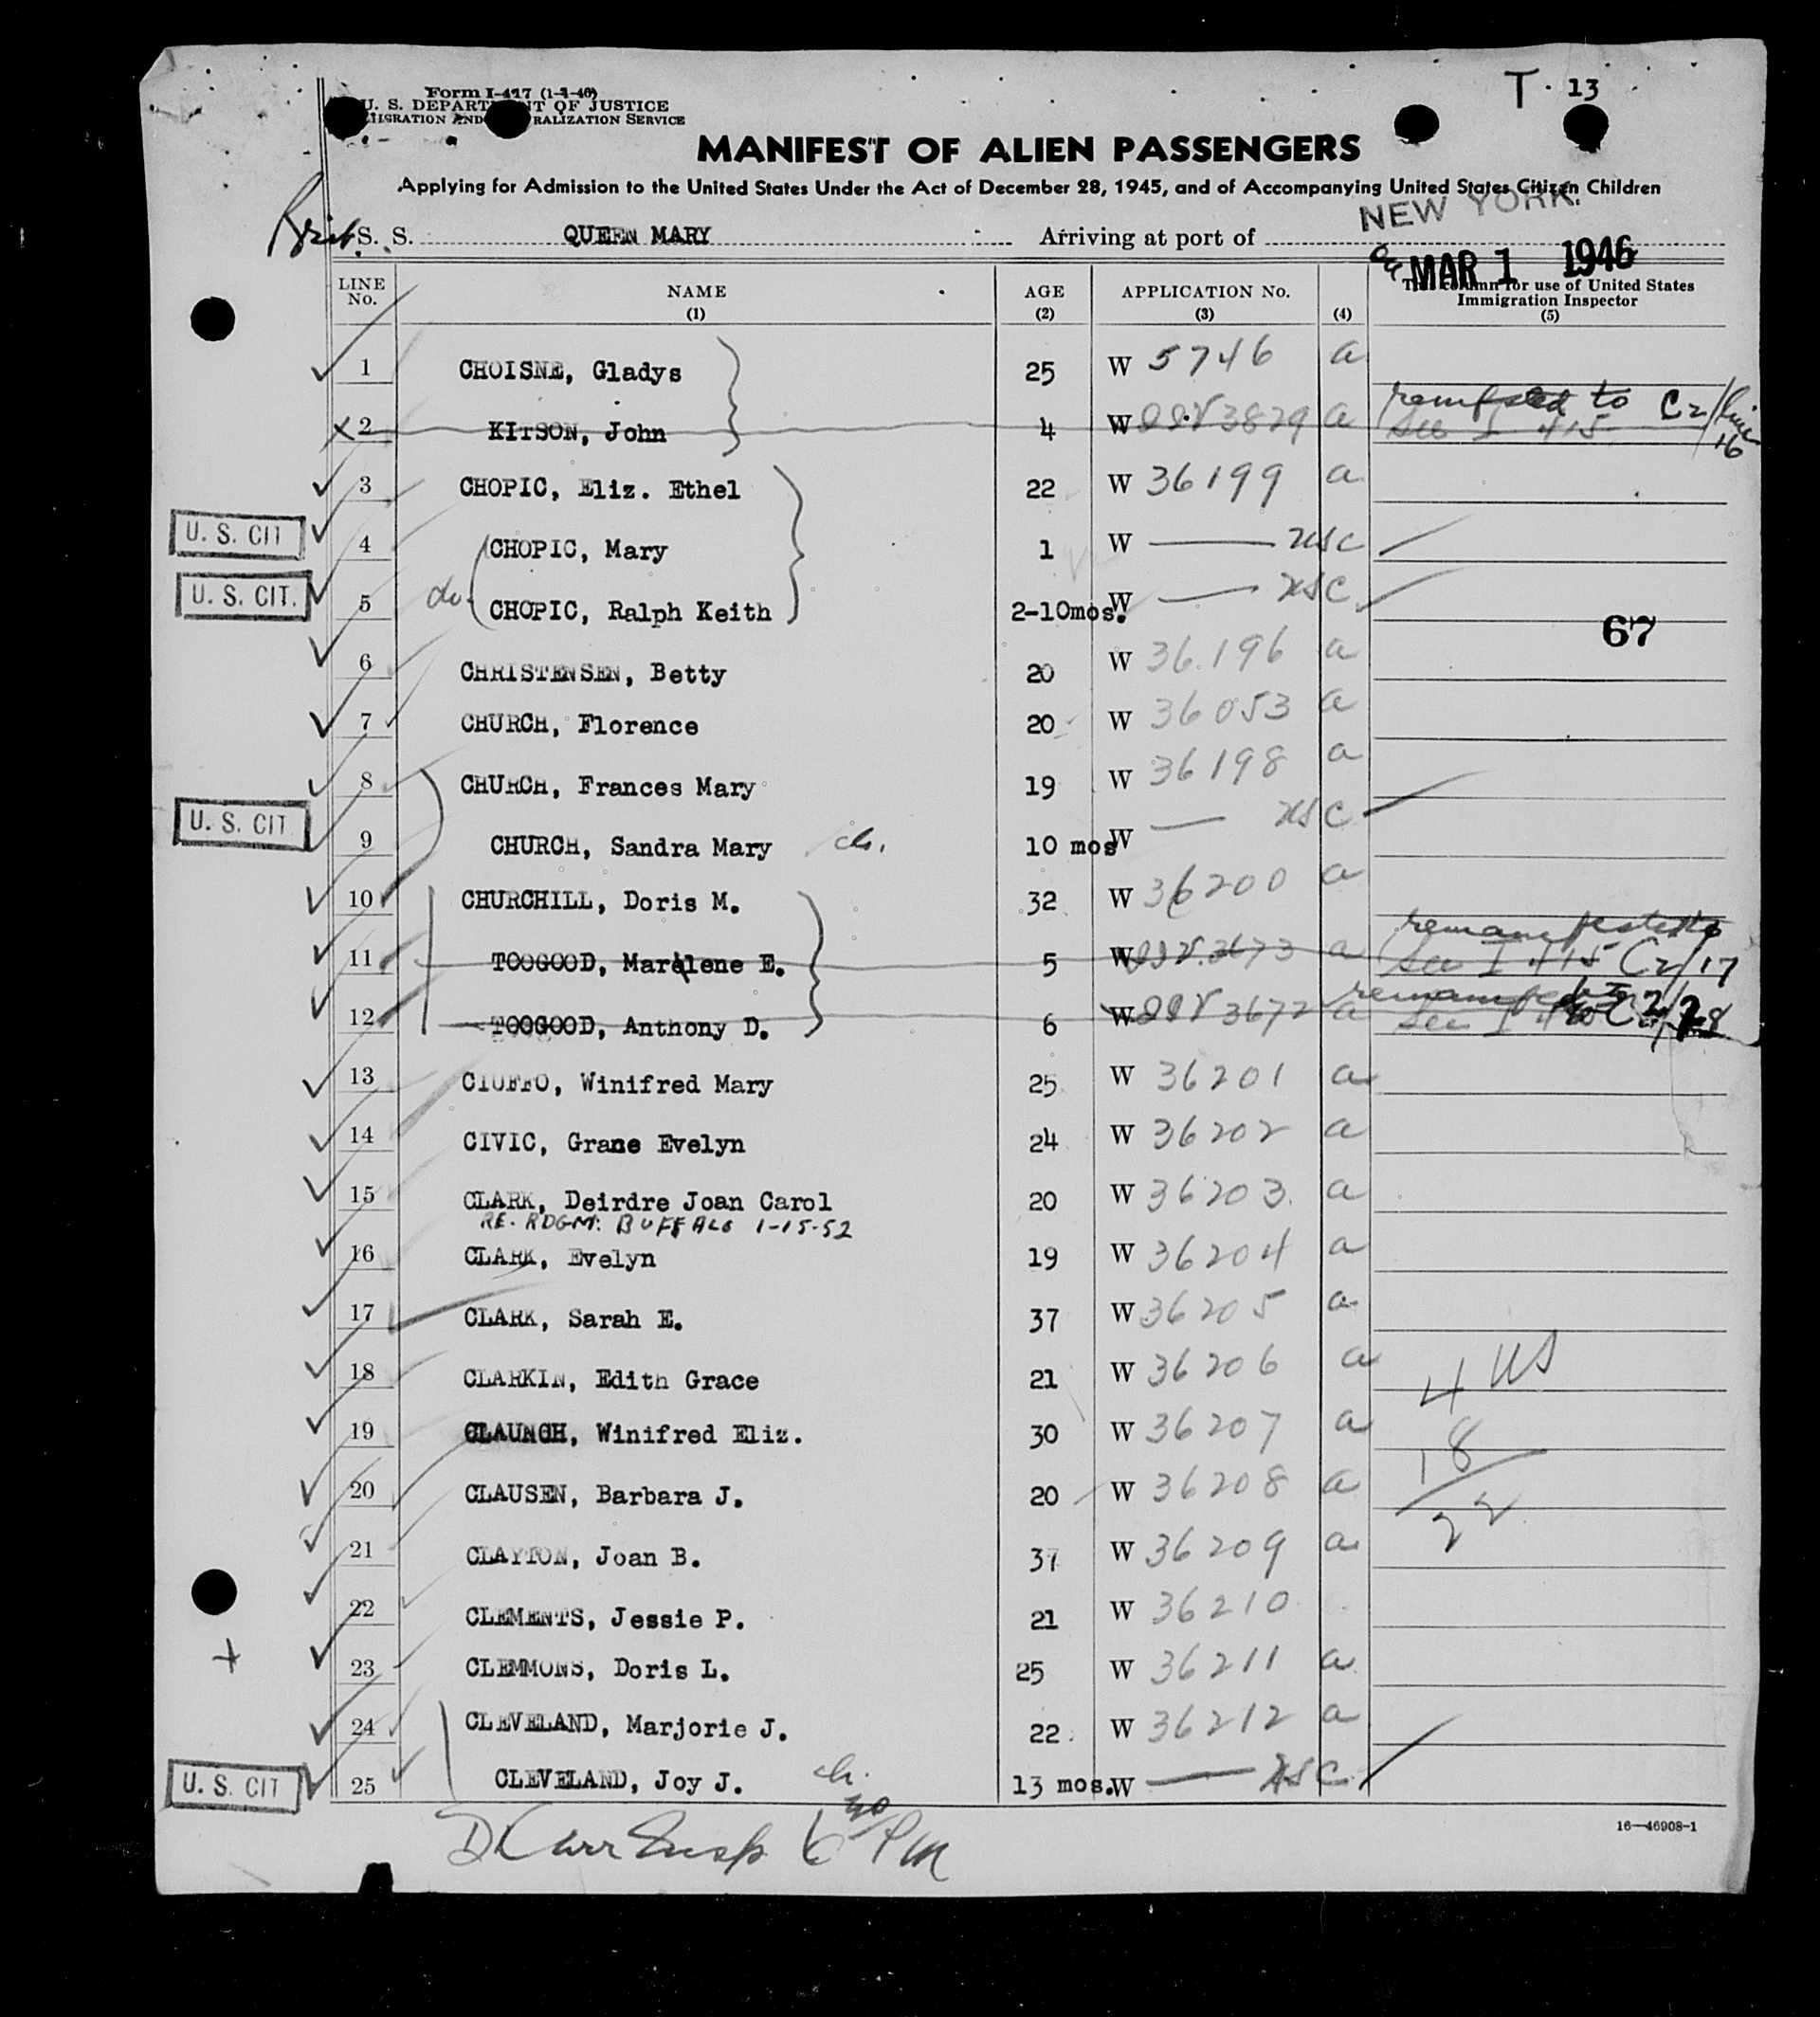 T. 13
Form I-417 (1-3-46)
U. S. DEPARTMENT OF JUSTICE
IMMIGRATION AND NATURALIZATION SERVICE
MANIFEST OF ALIEN PASSENGERS
Applying for Admission to the United States Under the Act of December 28, 1945, and of Accompanying United States Citizen Children
Brit. S. S. QUEEN MARY Arriving at port of NEW YORK.
on MAR 1 1946
LINE No. NAME (1) AGE (2) APPLICATION No. (3) (4) This column for use of United States Immigration Inspector (5)
1 CHOISNE, Gladys 25 W 5746 a
X 2 KITSON, John 4 W 3829 a remanifested to C2/line 16 See I 415
3 CHOPIC, Eliz. Ethel 22 W 36199 a
U. S. CIT 4 CHOPIC, Mary 1 W — USC
U. S. CIT. 5 ch. CHOPIC, Ralph Keith 2-10mos. W — USC
67
6 CHRISTENSEN, Betty 20 W 36196 a
7 CHURCH, Florence 20 W 36053 a
8 CHURCH, Frances Mary 19 W 36198 a
U. S. CIT 9 CHURCH, Sandra Mary ch. 10 mos W — USC
10 CHURCHILL, Doris M. 32 W 36200 a
11 TOOGOOD, Marelene E. 5 W 3673 a remanifested to See I 415 C2/17
12 TOOGOOD, Anthony D. 6 W 3672 a remanifested to See I 415
13 CIUFFO, Winifred Mary 25 W 36201 a
14 CIVIC, Grane Evelyn 24 W 36202 a
15 CLARK, Deirdre Joan Carol 20 W 36203 a
RE. RDGM: BUFFALO 1-15-52
16 CLARK, Evelyn 19 W 36204 a
17 CLARK, Sarah E. 37 W 36205 a
18 CLARKIN, Edith Grace 21 W 36206 a 4 US
19 CLAUNCH, Winifred Eliz. 30 W 36207 a 18
20 CLAUSEN, Barbara J. 20 W 36208 a 22
21 CLAYTON, Joan B. 37 W 36209 a
22 CLEMENTS, Jessie P. 21 W 36210
+ 23 CLEMMONS, Doris L. 25 W 36211 a
24 CLEVELAND, Marjorie J. 22 W 36212 a
U. S. CIT 25 CLEVELAND, Joy J. ch. 13 mos. W — USC
Insp 6 30 PM
16—46908-1